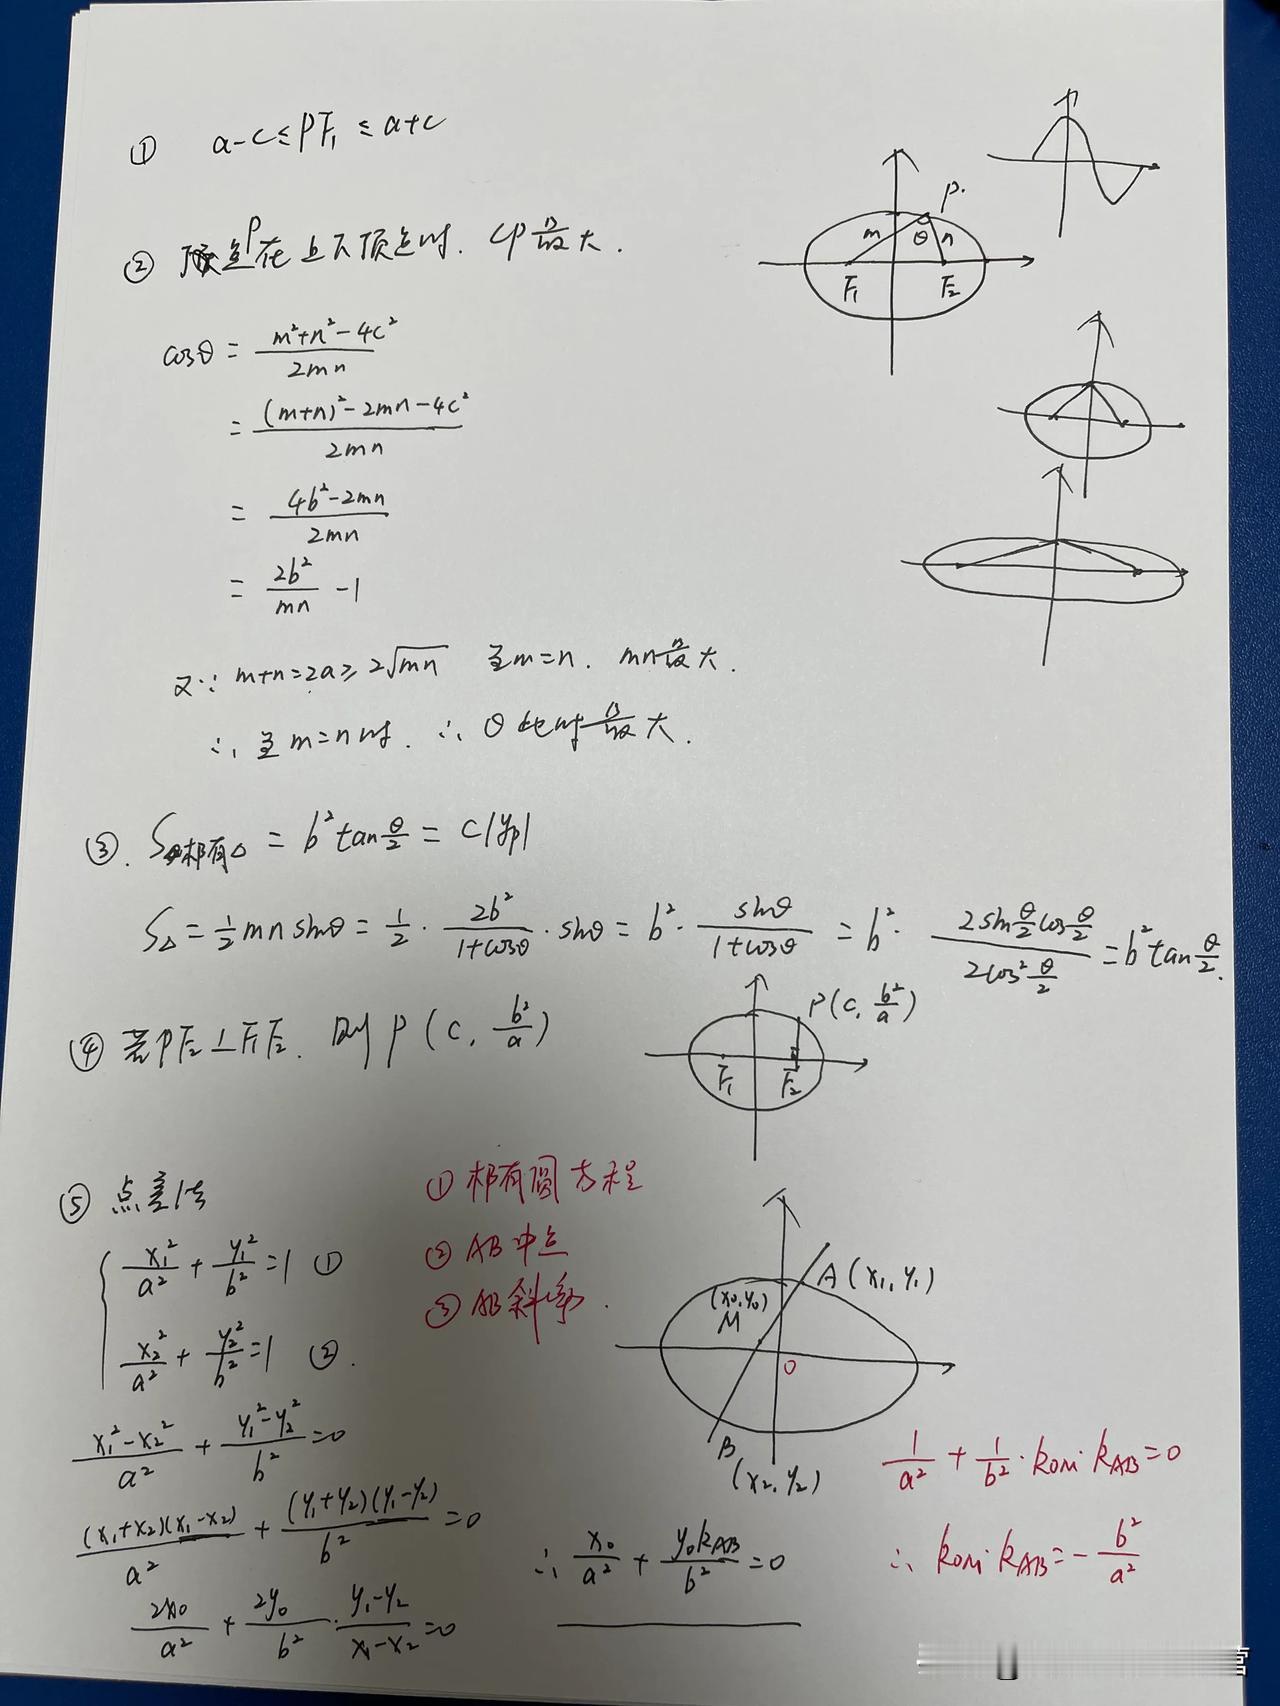 ① a-c≤PF₁≤a+c
② 点P在上下顶点时. 最大.
P.
m θ n
F₁ F₂
cosθ = \frac{m²+n²-4c²}{2mn}
= \frac{(m+n)²-2mn-4c²}{2mn}
= \frac{4b²-2mn}{2mn}
= \frac{2b²}{mn} -1
又∵ m+n=2a≥2\sqrt{mn} 当m=n. mn最大.
∴ 当m=n时. ∴ θ此时最大.
③. S椭有△ = b²tan\frac{θ}{2} = c|y_P|
S△ = \frac{1}{2}mn sinθ = \frac{1}{2}·\frac{2b²}{1+cosθ}·sinθ = b²·\frac{sinθ}{1+cosθ} = b²·\frac{2sin\frac{θ}{2}cos\frac{θ}{2}}{2cos²\frac{θ}{2}} = b²tan\frac{θ}{2}.
④ 若PF₂⊥F₁F₂. 则P(c, \frac{b²}{a})
P(c, \frac{b²}{a})
F₁ F₂
⑤ 点差法
{ \frac{x₁²}{a²} + \frac{y₁²}{b²} =1 ①
\frac{x₂²}{a²} + \frac{y₂²}{b²} =1 ②.
\frac{x₁²-x₂²}{a²} + \frac{y₁²-y₂²}{b²} =0
\frac{(x₁+x₂)(x₁-x₂)}{a²} + \frac{(y₁+y₂)(y₁-y₂)}{b²} =0
\frac{2x₀}{a²} + \frac{2y₀}{b²}·\frac{y₁-y₂}{x₁-x₂} =0
① 椭有圆方程
② AB中点
③ AB斜率.
A(x₁, y₁)
(x₀, y₀)
M
O
B
(x₂, y₂)
∴ \frac{x₀}{a²} + \frac{y₀k_{AB}}{b²} =0
\frac{1}{a²} + \frac{1}{b²}·k_{OM}·k_{AB}=0
∴ k_{OM}·k_{AB}=-\frac{b²}{a²}